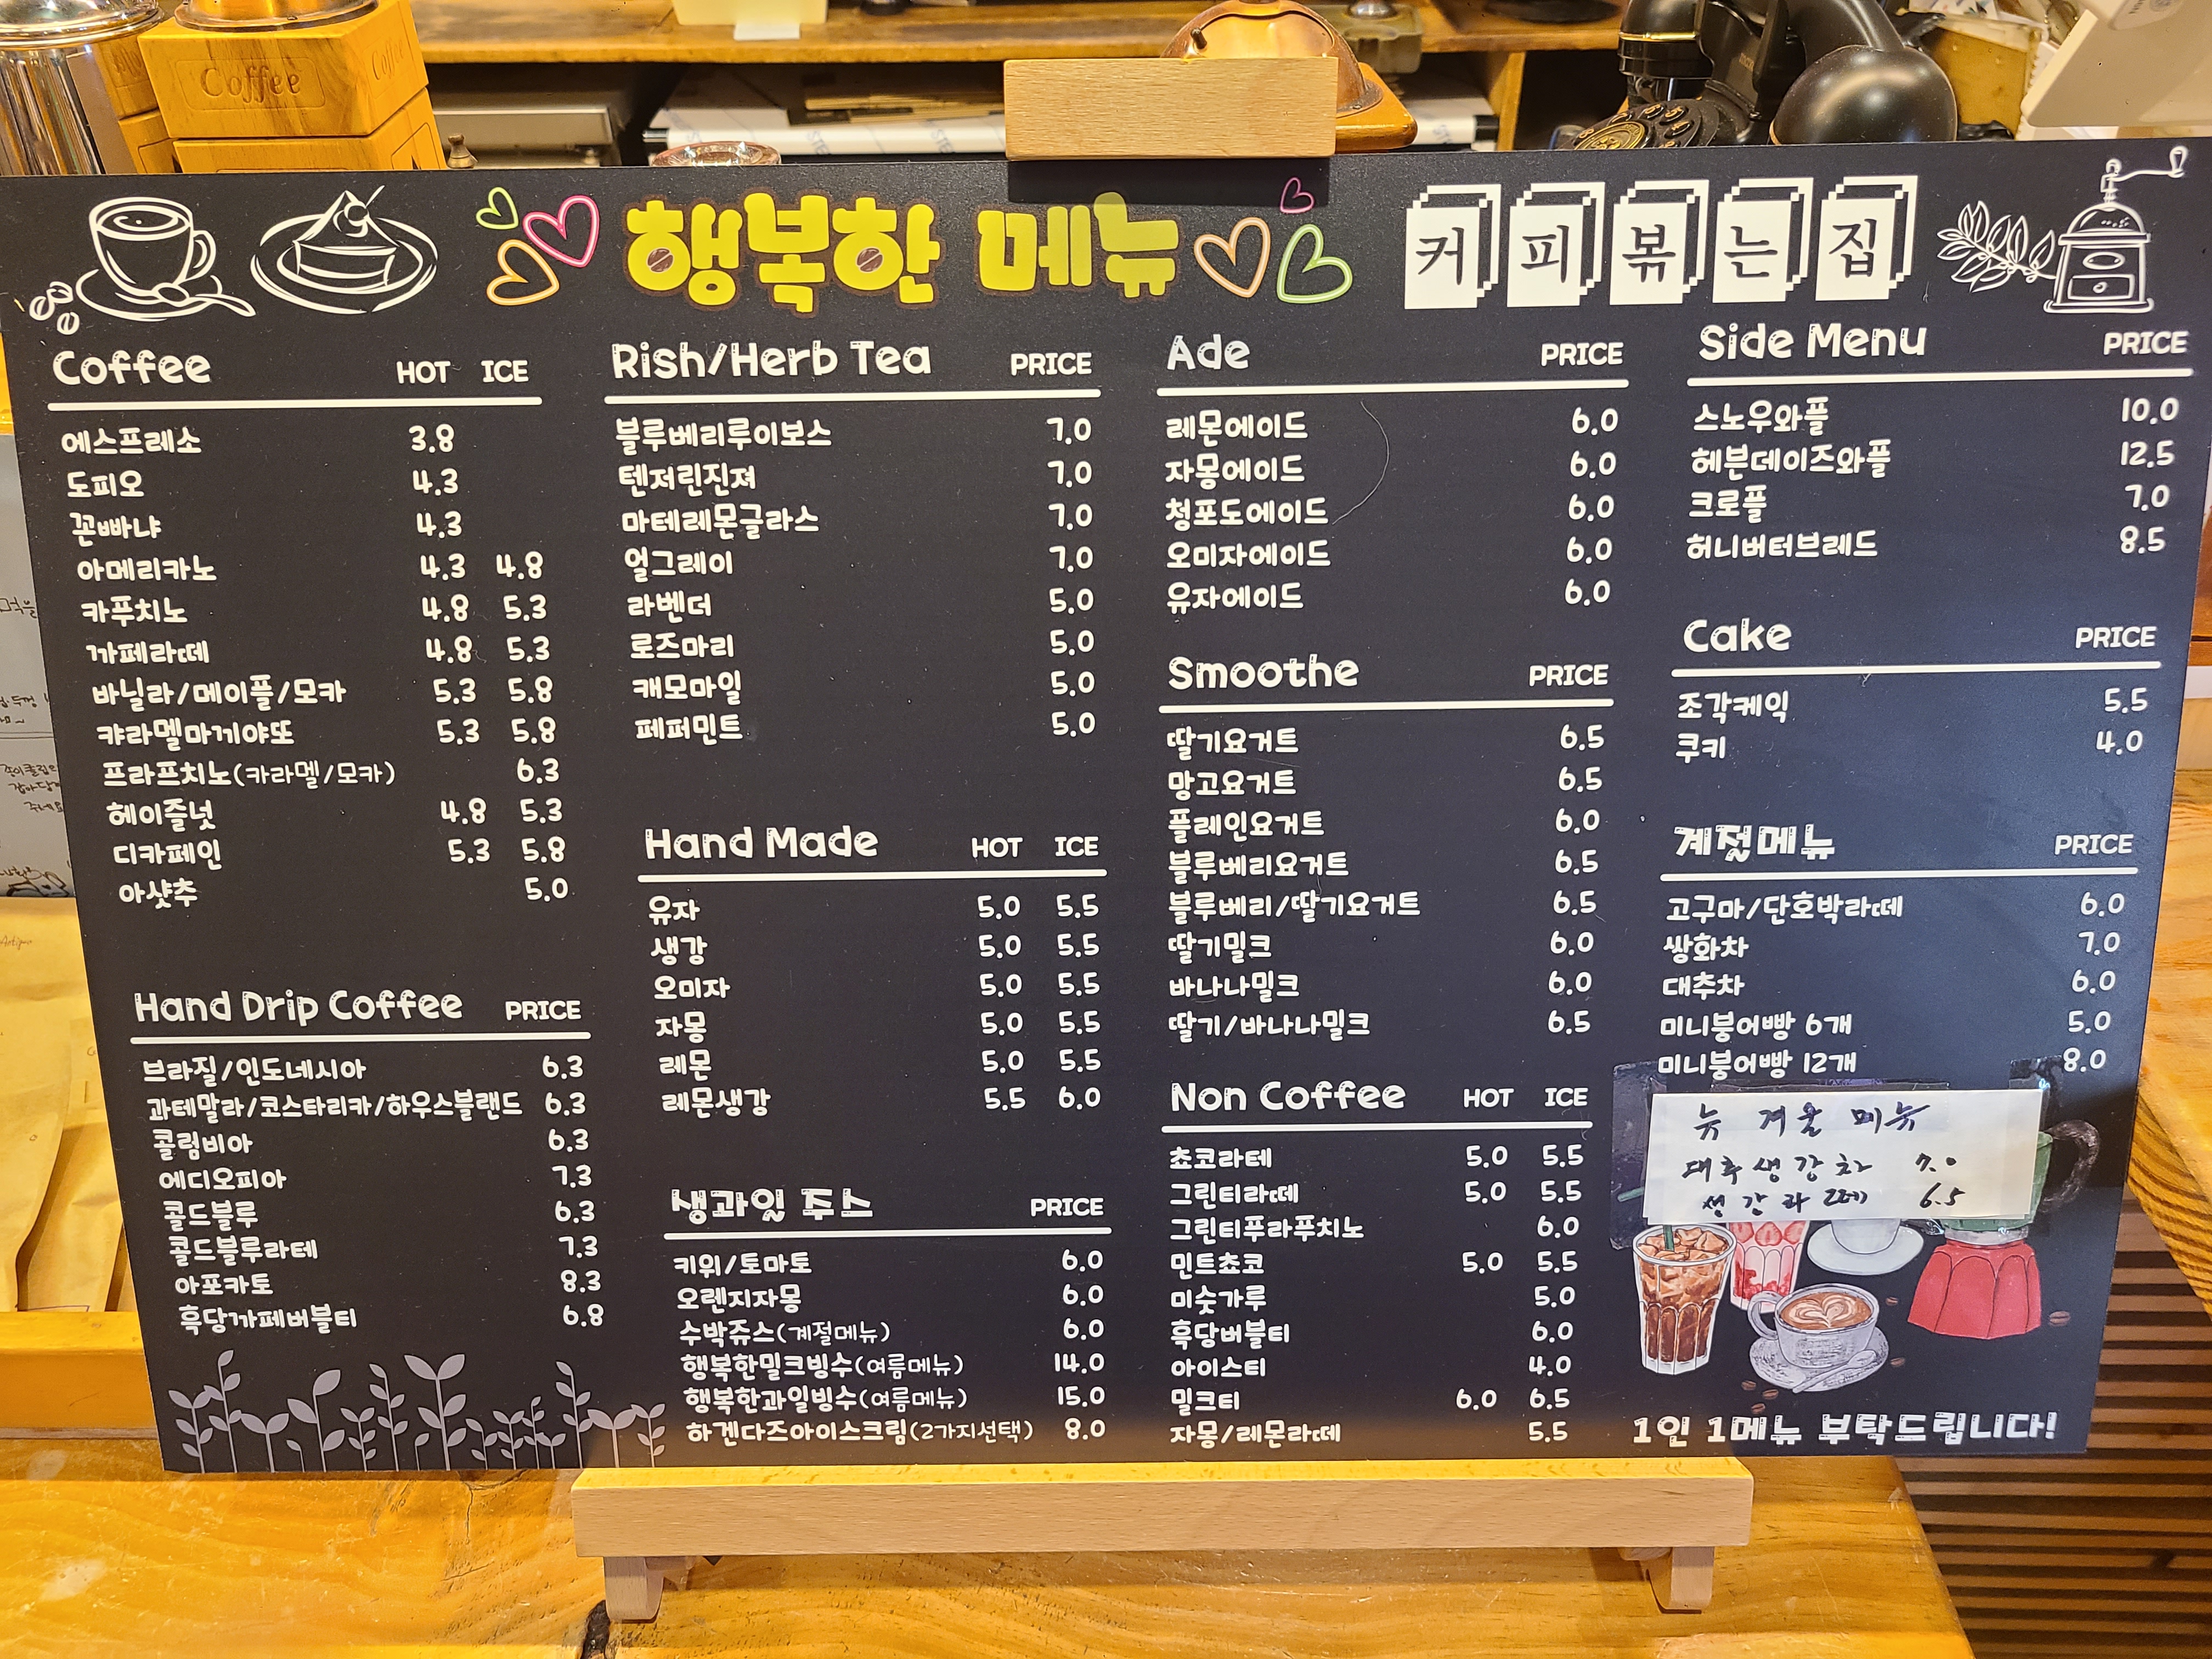 Coffee
행복한 메뉴
커피볶는집
Coffee HOT ICE
에스프레소 3.8
도피오 4.3
꼰빠냐 4.3
아메리카노 4.3 4.8
카푸치노 4.8 5.3
까페라떼 4.8 5.3
바닐라/메이플/모카 5.3 5.8
캬라멜마끼야또 5.3 5.8
프라프치노(카라멜/모카) 6.3
헤이즐넛 4.8 5.3
디카페인 5.3 5.8
아샷추 5.0
Hand Drip Coffee PRICE
브라질/인도네시아 6.3
과테말라/코스타리카/하우스블랜드 6.3
콜럼비아 6.3
에디오피아 7.3
콜드블루 6.3
콜드블루라테 7.3
아포카토 8.3
흑당까페버블티 6.8
Rish/Herb Tea PRICE
블루베리루이보스 7.0
텐저린진져 7.0
마테레몬글라스 7.0
얼그레이 7.0
라벤더 5.0
로즈마리 5.0
캐모마일 5.0
페퍼민트 5.0
Hand Made HOT ICE
유자 5.0 5.5
생강 5.0 5.5
오미자 5.0 5.5
자몽 5.0 5.5
레몬 5.0 5.5
레몬생강 5.5 6.0
생과일 주스 PRICE
키위/토마토 6.0
오렌지자몽 6.0
수박쥬스(계절메뉴) 6.0
행복한밀크빙수(여름메뉴) 14.0
행복한과일빙수(여름메뉴) 15.0
하겐다즈아이스크림(2가지선택) 8.0
Ade PRICE
레몬에이드 6.0
자몽에이드 6.0
청포도에이드 6.0
오미자에이드 6.0
유자에이드 6.0
Smoothe PRICE
딸기요거트 6.5
망고요거트 6.5
플레인요거트 6.0
블루베리요거트 6.5
블루베리/딸기요거트 6.5
딸기밀크 6.0
바나나밀크 6.0
딸기/바나나밀크 6.5
Non Coffee HOT ICE
쵸코라테 5.0 5.5
그린티라떼 5.0 5.5
그린티푸라푸치노 6.0
민트쵸코 5.0 5.5
미숫가루 5.0
흑당버블티 6.0
아이스티 4.0
밀크티 6.0 6.5
자몽/레몬라떼 5.5
Side Menu PRICE
스노우와플 10.0
헤븐데이즈와플 12.5
크로플 7.0
허니버터브레드 8.5
Cake PRICE
조각케익 5.5
쿠키 4.0
계절메뉴 PRICE
고구마/단호박라떼 6.0
쌍화차 7.0
대추차 6.0
미니붕어빵 6개 5.0
미니붕어빵 12개 8.0
뉴 겨울 메뉴
대추생강차 7.0
생강라떼 6.5
1인 1메뉴 부탁드립니다!